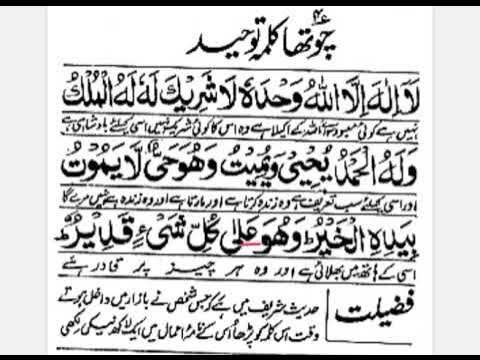 چوتھا کلمہ توحید
لَا اِلٰهَ اِلَّا اللّٰهُ وَحْدَهٗ لَا شَرِيْكَ لَهٗ لَهُ الْمُلْكُ
نہیں ہے کوئی معبود سوائے اللہ کے اکیلا ہے وہ اس کا کوئی شریک نہیں اسی کیلئے بادشاہی ہے
وَلَهُ الْحَمْدُ يُحْيِىْ وَيُمِيْتُ وَهُوَ حَىٌّ لَّا يَمُوْتُ
اور اسی کیلئے سب تعریف ہے وہ زندہ کرتا ہے اور مارتا ہے اور وہ زندہ ہے نہیں مرے گا
بِيَدِهِ الْخَيْرُ ط وَهُوَ عَلٰى كُلِّ شَىْءٍ قَدِيْرٌ ط
اسی کے ہاتھ میں بھلائی ہے اور وہ ہر چیز پر قادر ہے
فضیلت
حدیث شریف میں ہے کہ جس شخص نے بازار میں داخل ہوتے
وقت اس کلمہ کو پڑھا اُس کے نامۂ اعمال میں ایک لاکھ نیکی لکھی